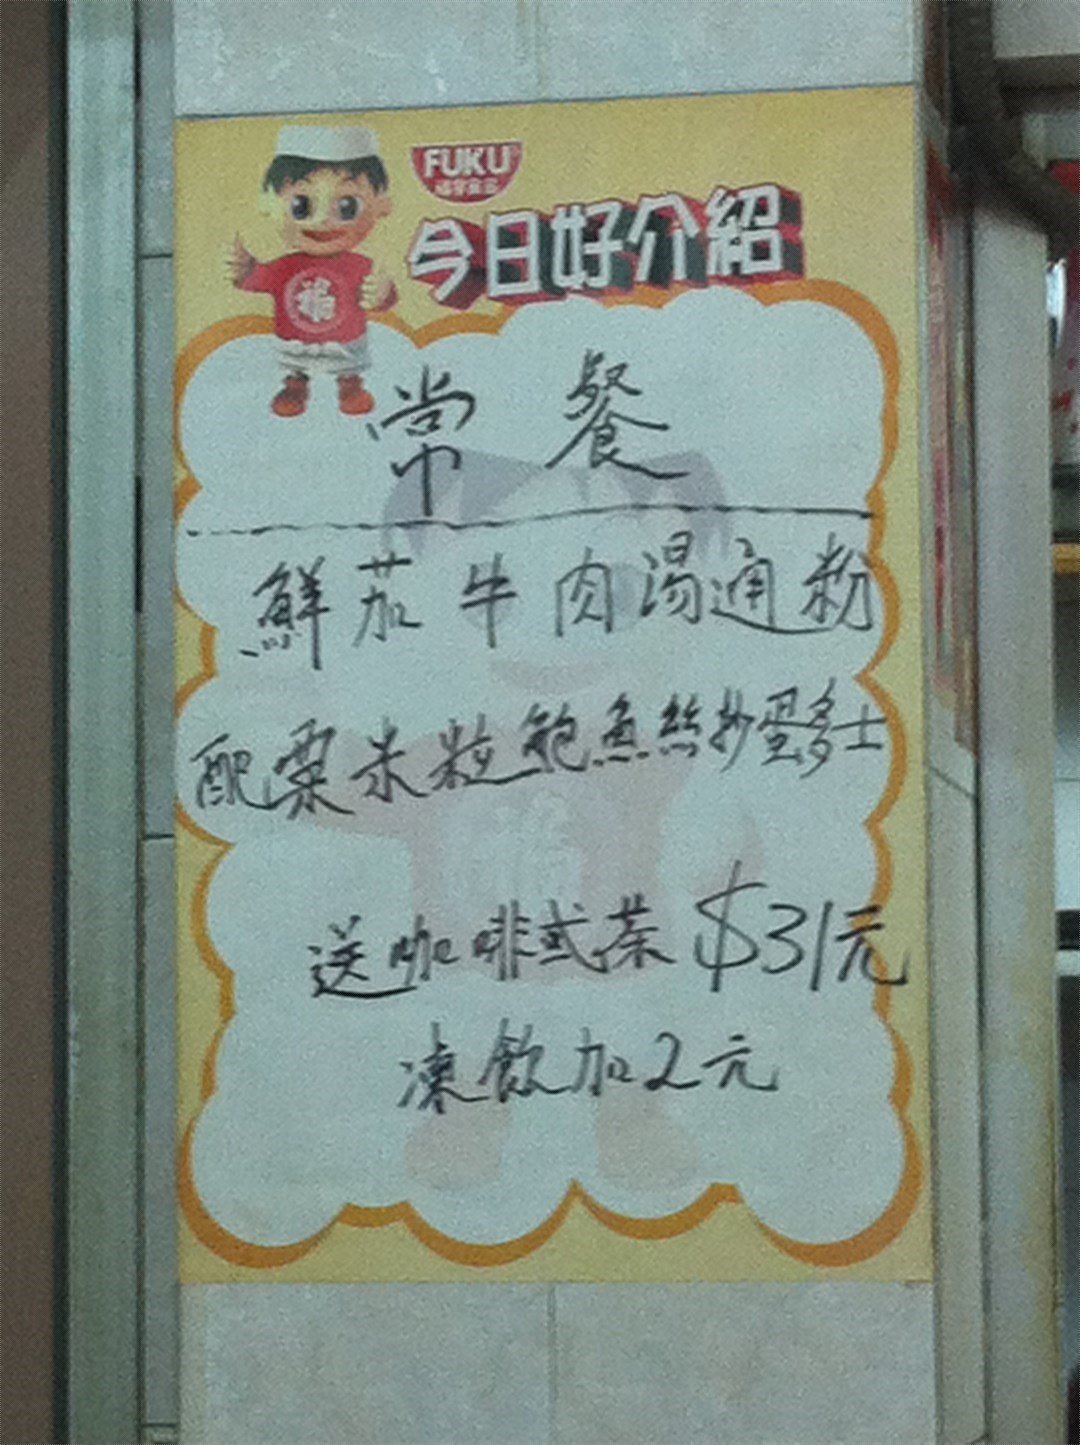 FUKU
今日好介紹
福
常餐
鮮茄牛肉湯通粉
配粟米粒鮑魚絲抄蛋多士
送咖啡或茶 $31元
凍飲加2元